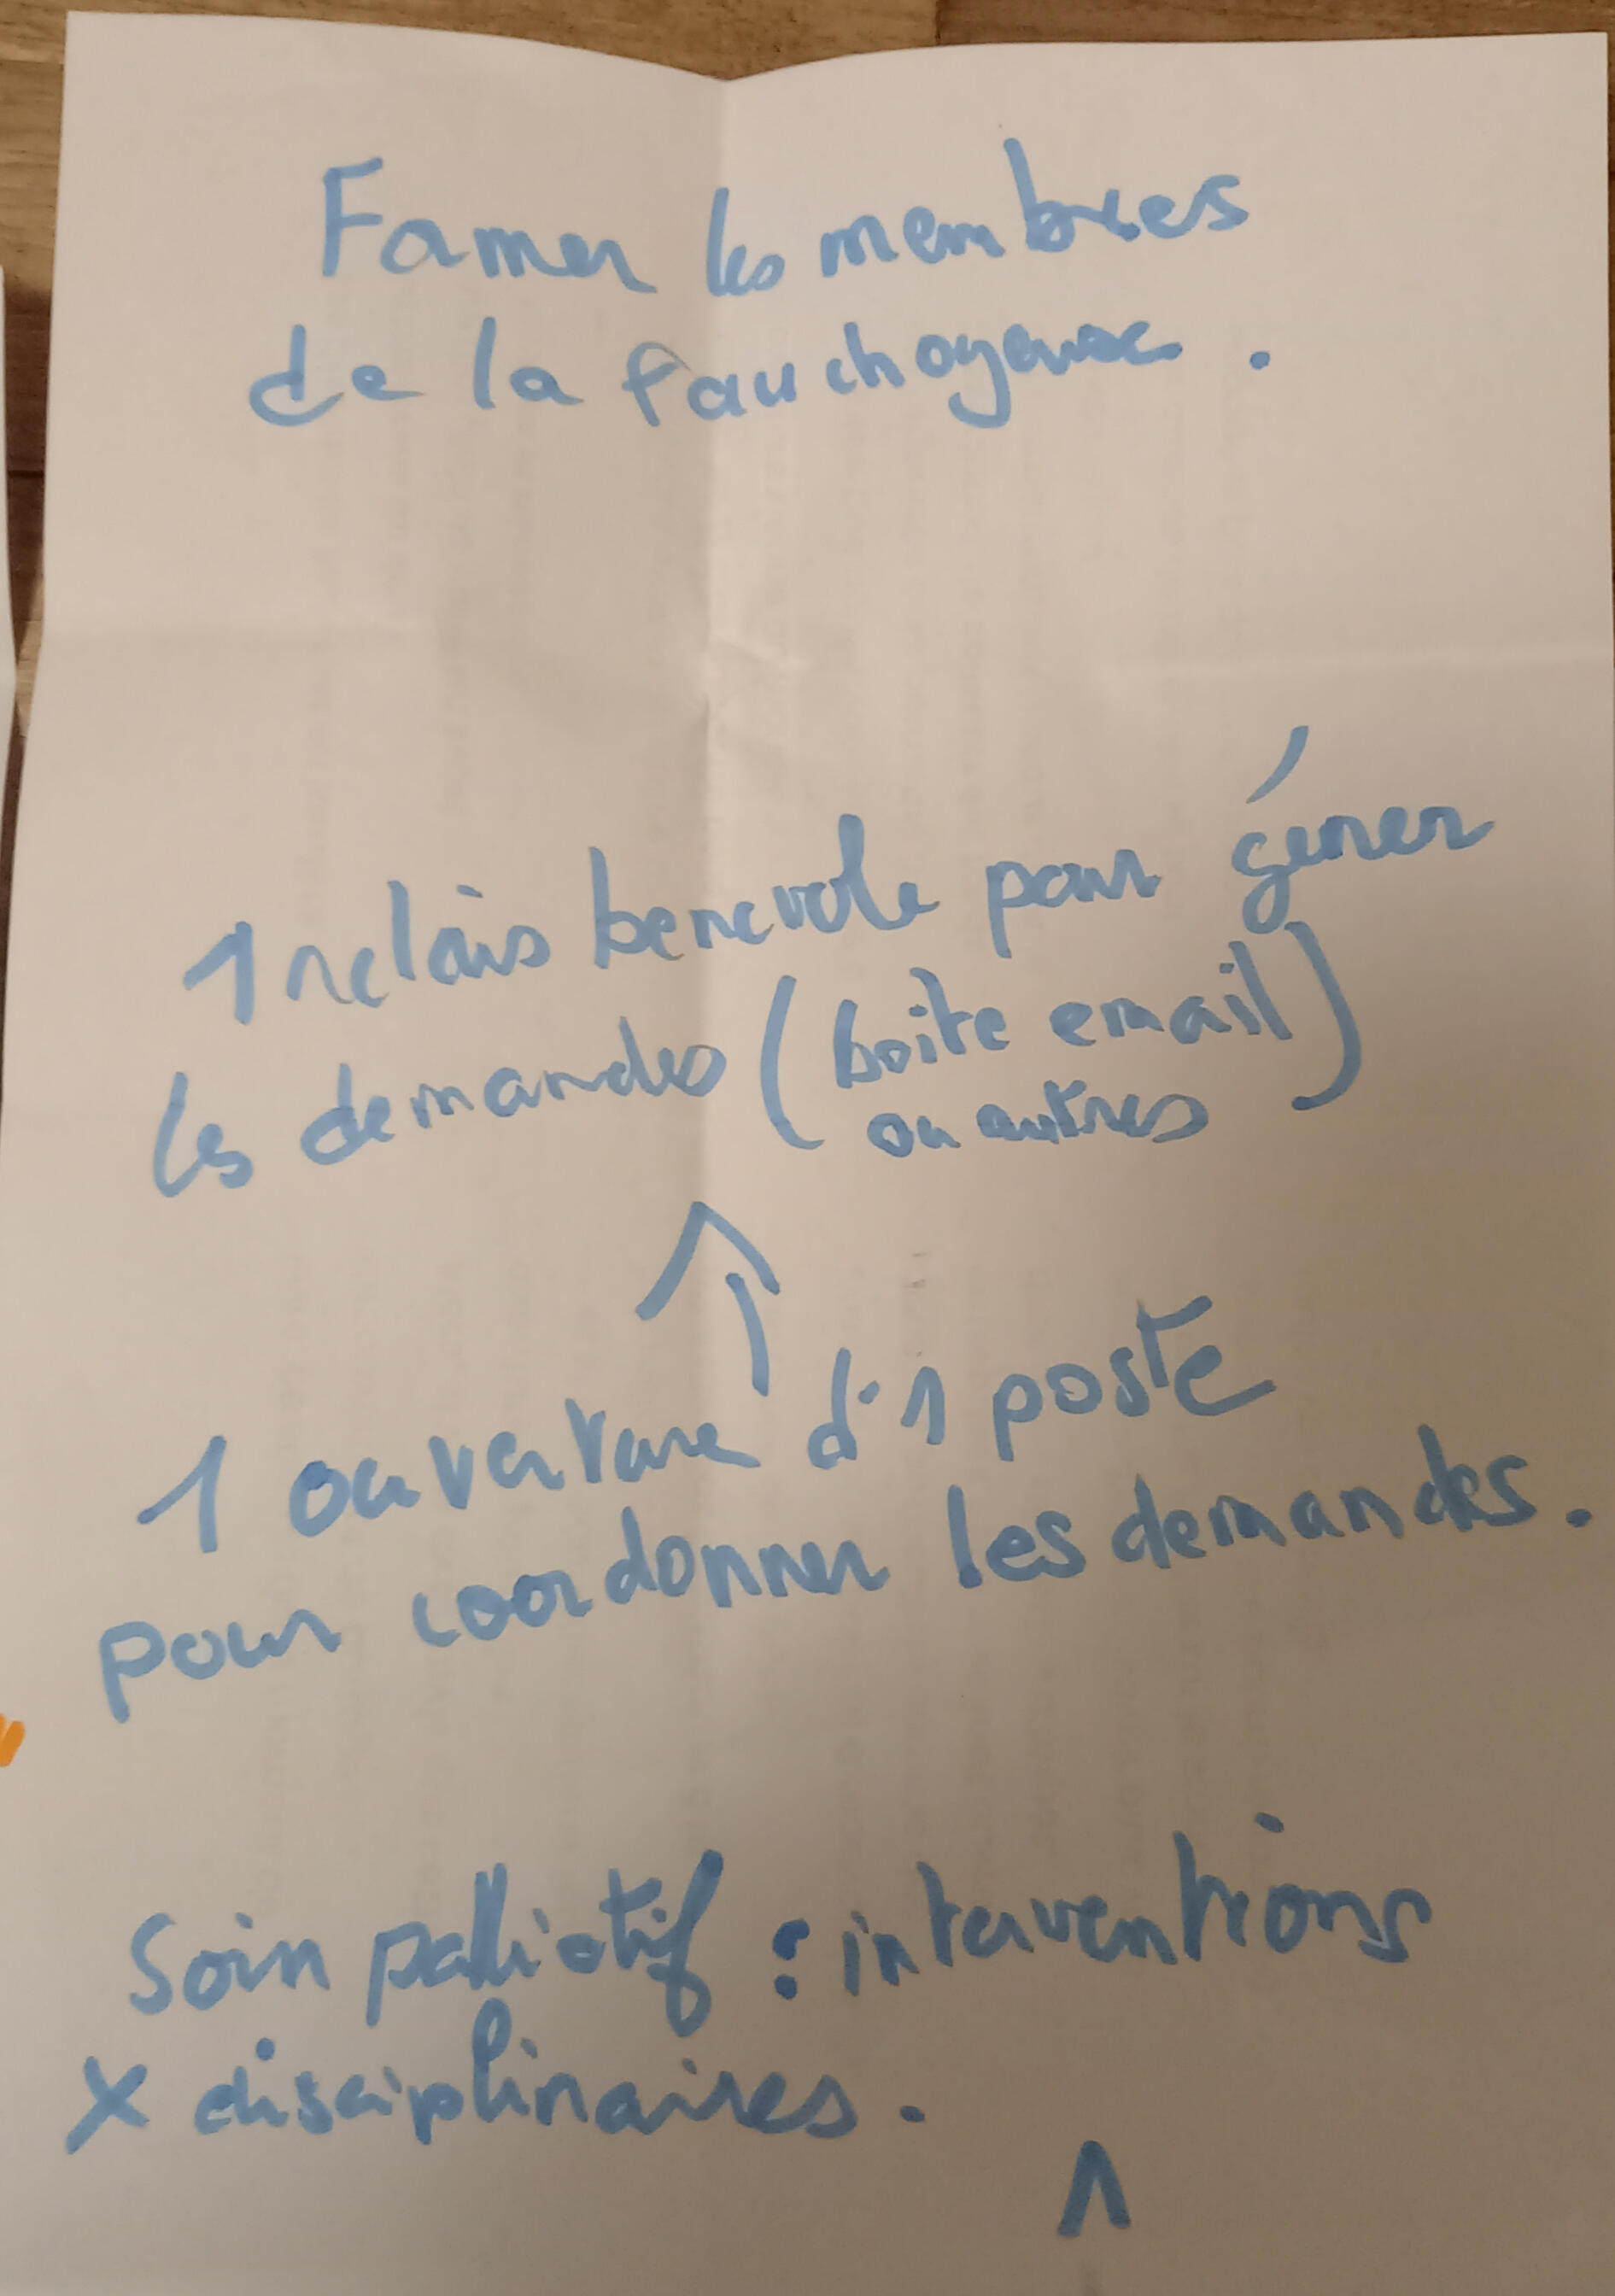 Former les membres
de la fauchoyeuse.
1 relais benevole pour gérer
les demandes (boite email)
ou autres
↑
1 ouverture d'1 poste
pour coordonner les demandes.
Soin palliatif : interventions
X disciplinaires.